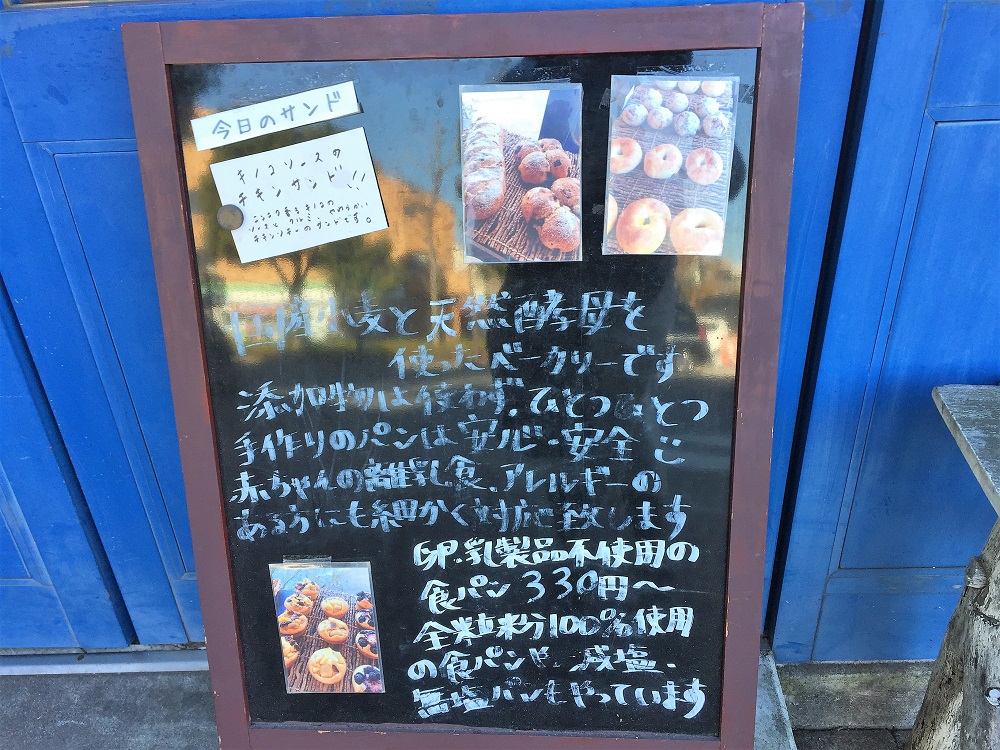 今日のサンド
キノコソースの
チキンサンド!!
ニンニク香るキノコの
チキンソテーのサンドです。
国産小麦と天然酵母を
使ったベーカリーです
添加物は使わず、ひとつひとつ
手作りのパンは安心・安全
赤ちゃんの離乳食、アレルギーの
ある方にも細かく対応致します
卵・乳製品不使用の
食パン 330円〜
全粒粉100%使用
の食パンや、減塩・
無塩パンもやっています